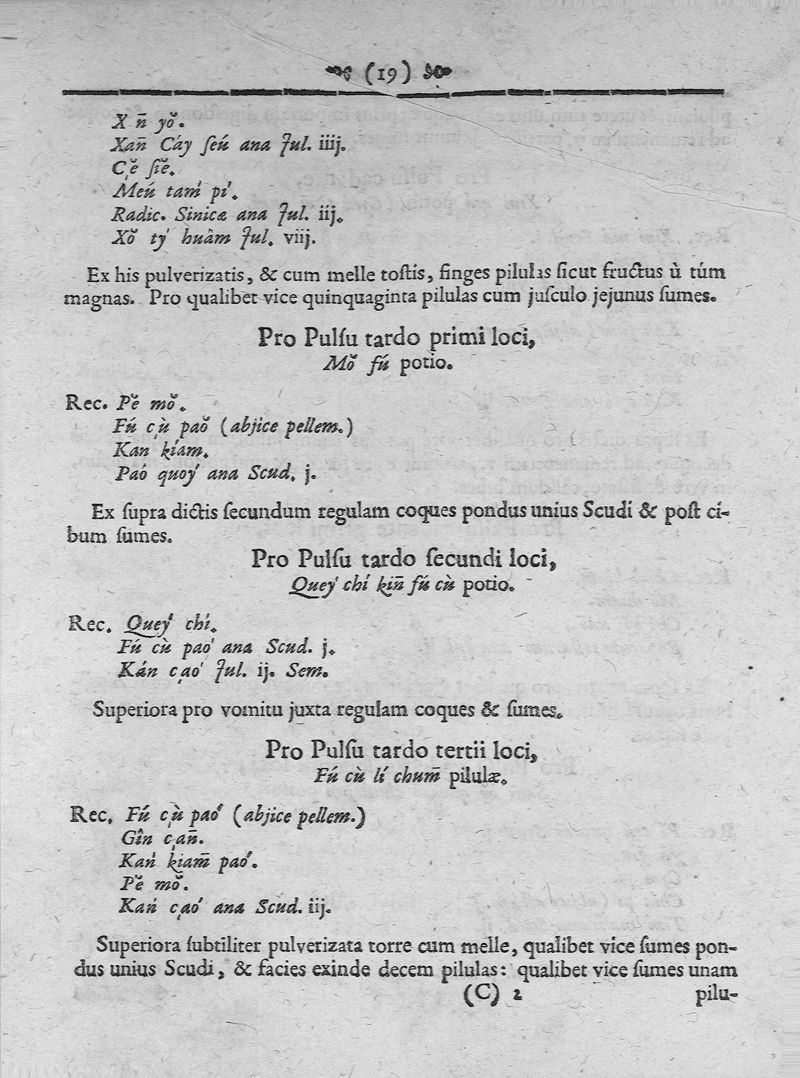 (19)
X n̄ yŏ.
Xan̄ Cáy ſeú ana Jul. iiij.
Cĕ̦ ſiĕ.
Meú tam̍ pi̍.
Radic. Sinicæ ana Jul. iij.
Xŏ ty̍ huâm Jul. viij.
Ex his pulverizatis, & cum melle toſtis, finges pilulas ſicut fructus ù túm
magnas. Pro qualibet vice quinquaginta pilulas cum juſculo jejunus ſumes.
Pro Pulſu tardo primi loci,
Mŏ fú potio.
Rec. Pĕ mŏ.
Fú c̦ù paŏ (abjice pellem.)
Kan kíam.
Paó quoy̍ ana Scud. j.
Ex ſupra dictis ſecundum regulam coques pondus unius Scudi & poſt ci-
bum ſumes.
Pro Pulſu tardo ſecundi loci,
Quey̍ chí kin̄ fú cù potio.
Rec. Quey̍ chí.
Fú cù pao̍ ana Scud. j.
Kán c̦ao̍ Jul. ij. Sem.
Superiora pro vomitu juxta regulam coques & ſumes.
Pro Pulſu tardo tertii loci,
Fú cù lí chum̄ pilulæ.
Rec. Fú c̦ù paó (abjice pellem.)
Gîn c̦an̄.
Kan̍ kiam̄ paó.
Pĕ mŏ.
Kan̍ c̦aó ana Scud. iij.
Superiora ſubtiliter pulverizata torre cum melle, qualibet vice ſumes pon-
dus unius Scudi, & facies exinde decem pilulas: qualibet vice ſumes unam
(C) 2 pilu-